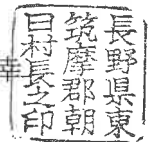 長野県東
筑摩郡朝
日村長之印
幸